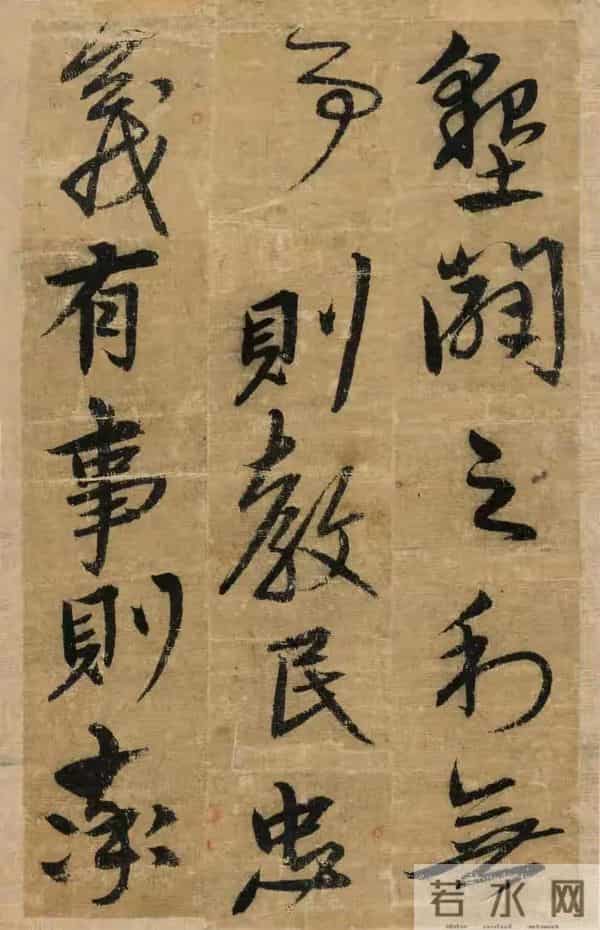 墾闢之利無
事則教民忠
義有事則率
若水网